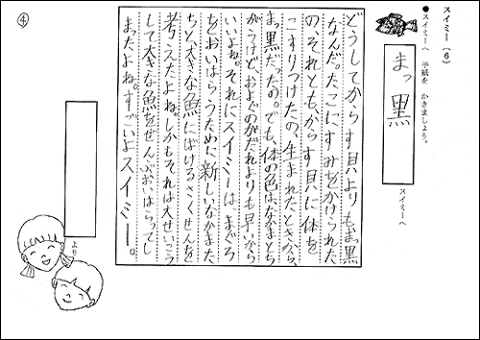 スイミー（6）
●スイミーへ　手紙を　かきましょう。
まっ黒
スイミーへ
どうしてからす貝よりもまっ黒
なんだ。たこにすみをかけられた
の、それとも、からす貝に体を
こすりつけたの、生まれたときから、
まっ黒だったの。でも、体の色はなかまとち
がうけど、およぐのがだれよりも早いから
いいよね。それにスイミーは、まぐろ
をおいはらうために新しいなかまた
ちと、大きな魚にばけるさくせんを
考えたよね。しかもそれは大せいこう
して大きな魚をぜんぶおいはらってし
まったよね。すっごいよスイミー。
より
④